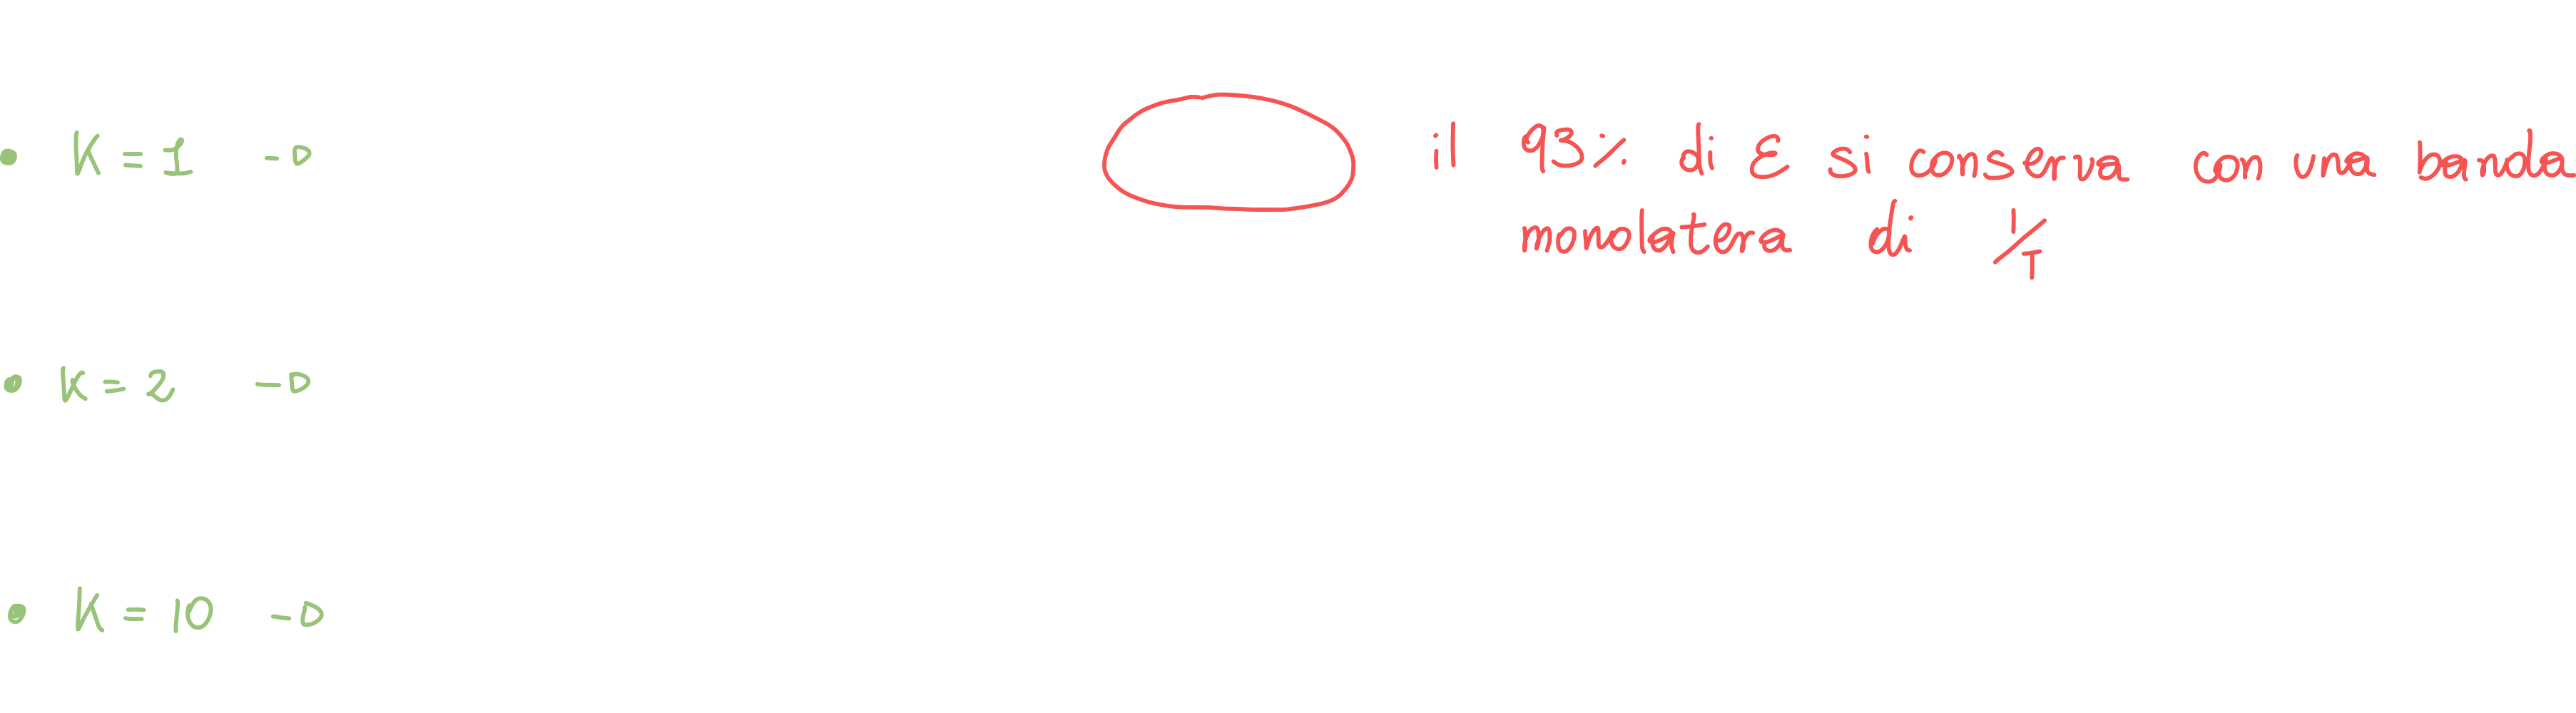 • K = 1 -▷ il 93% di ℰ si conserva con una banda
monolatera di 1/T
• K = 2 -▷
• K = 10 -▷